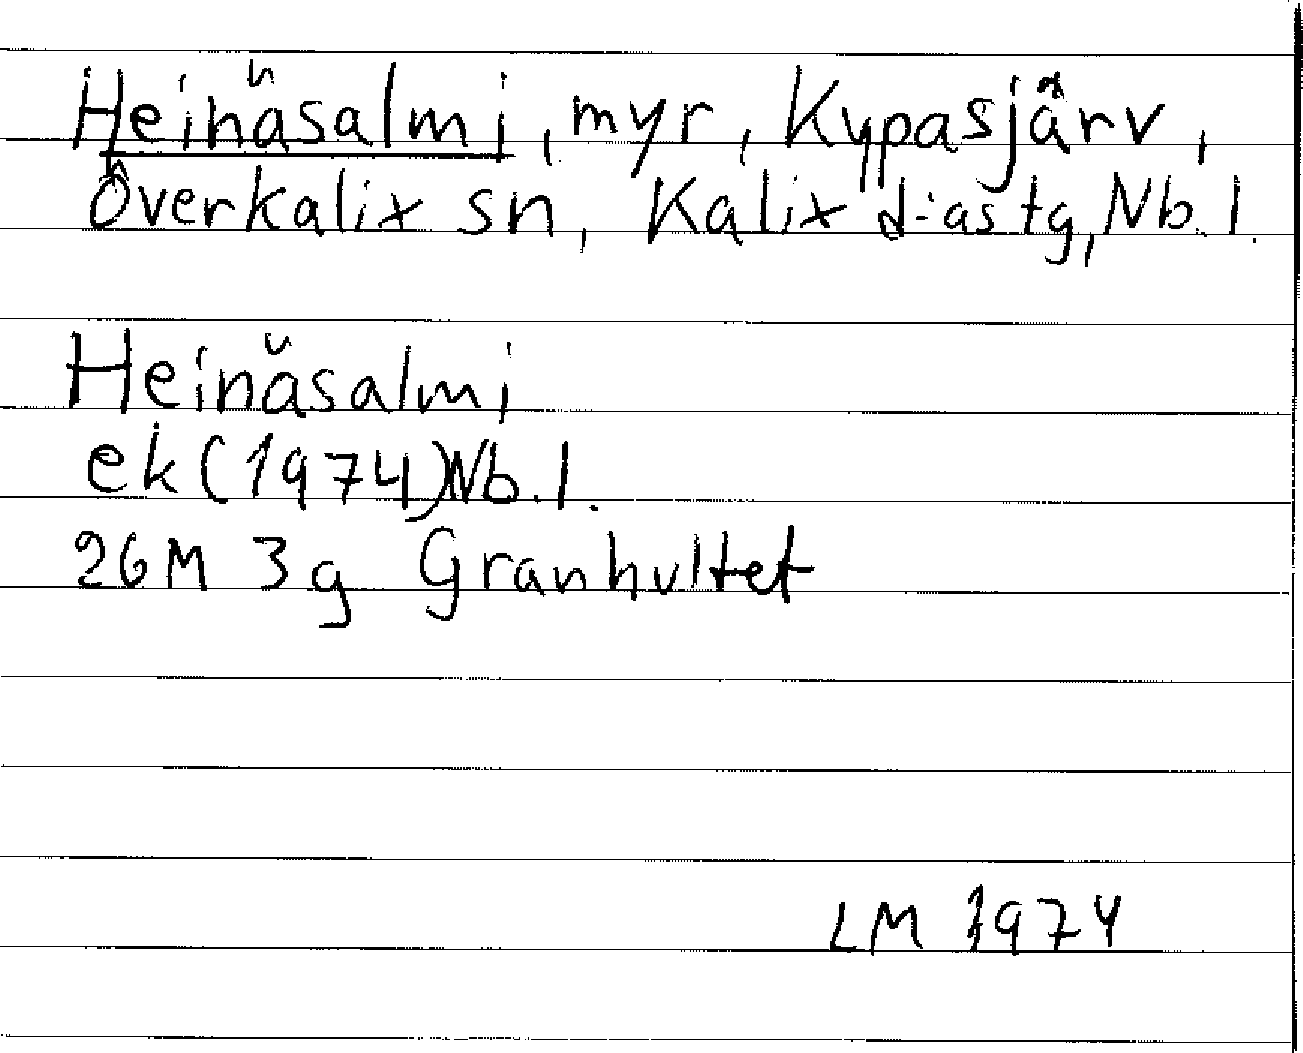 Heinäsalmi, myr, Kypasjärv,
Överkalix sn, Kalix d:as tg, Nb. l.
Heinäsalmi
ek (1974) Nb. l.
26M 3g Granhultet
LM 1974